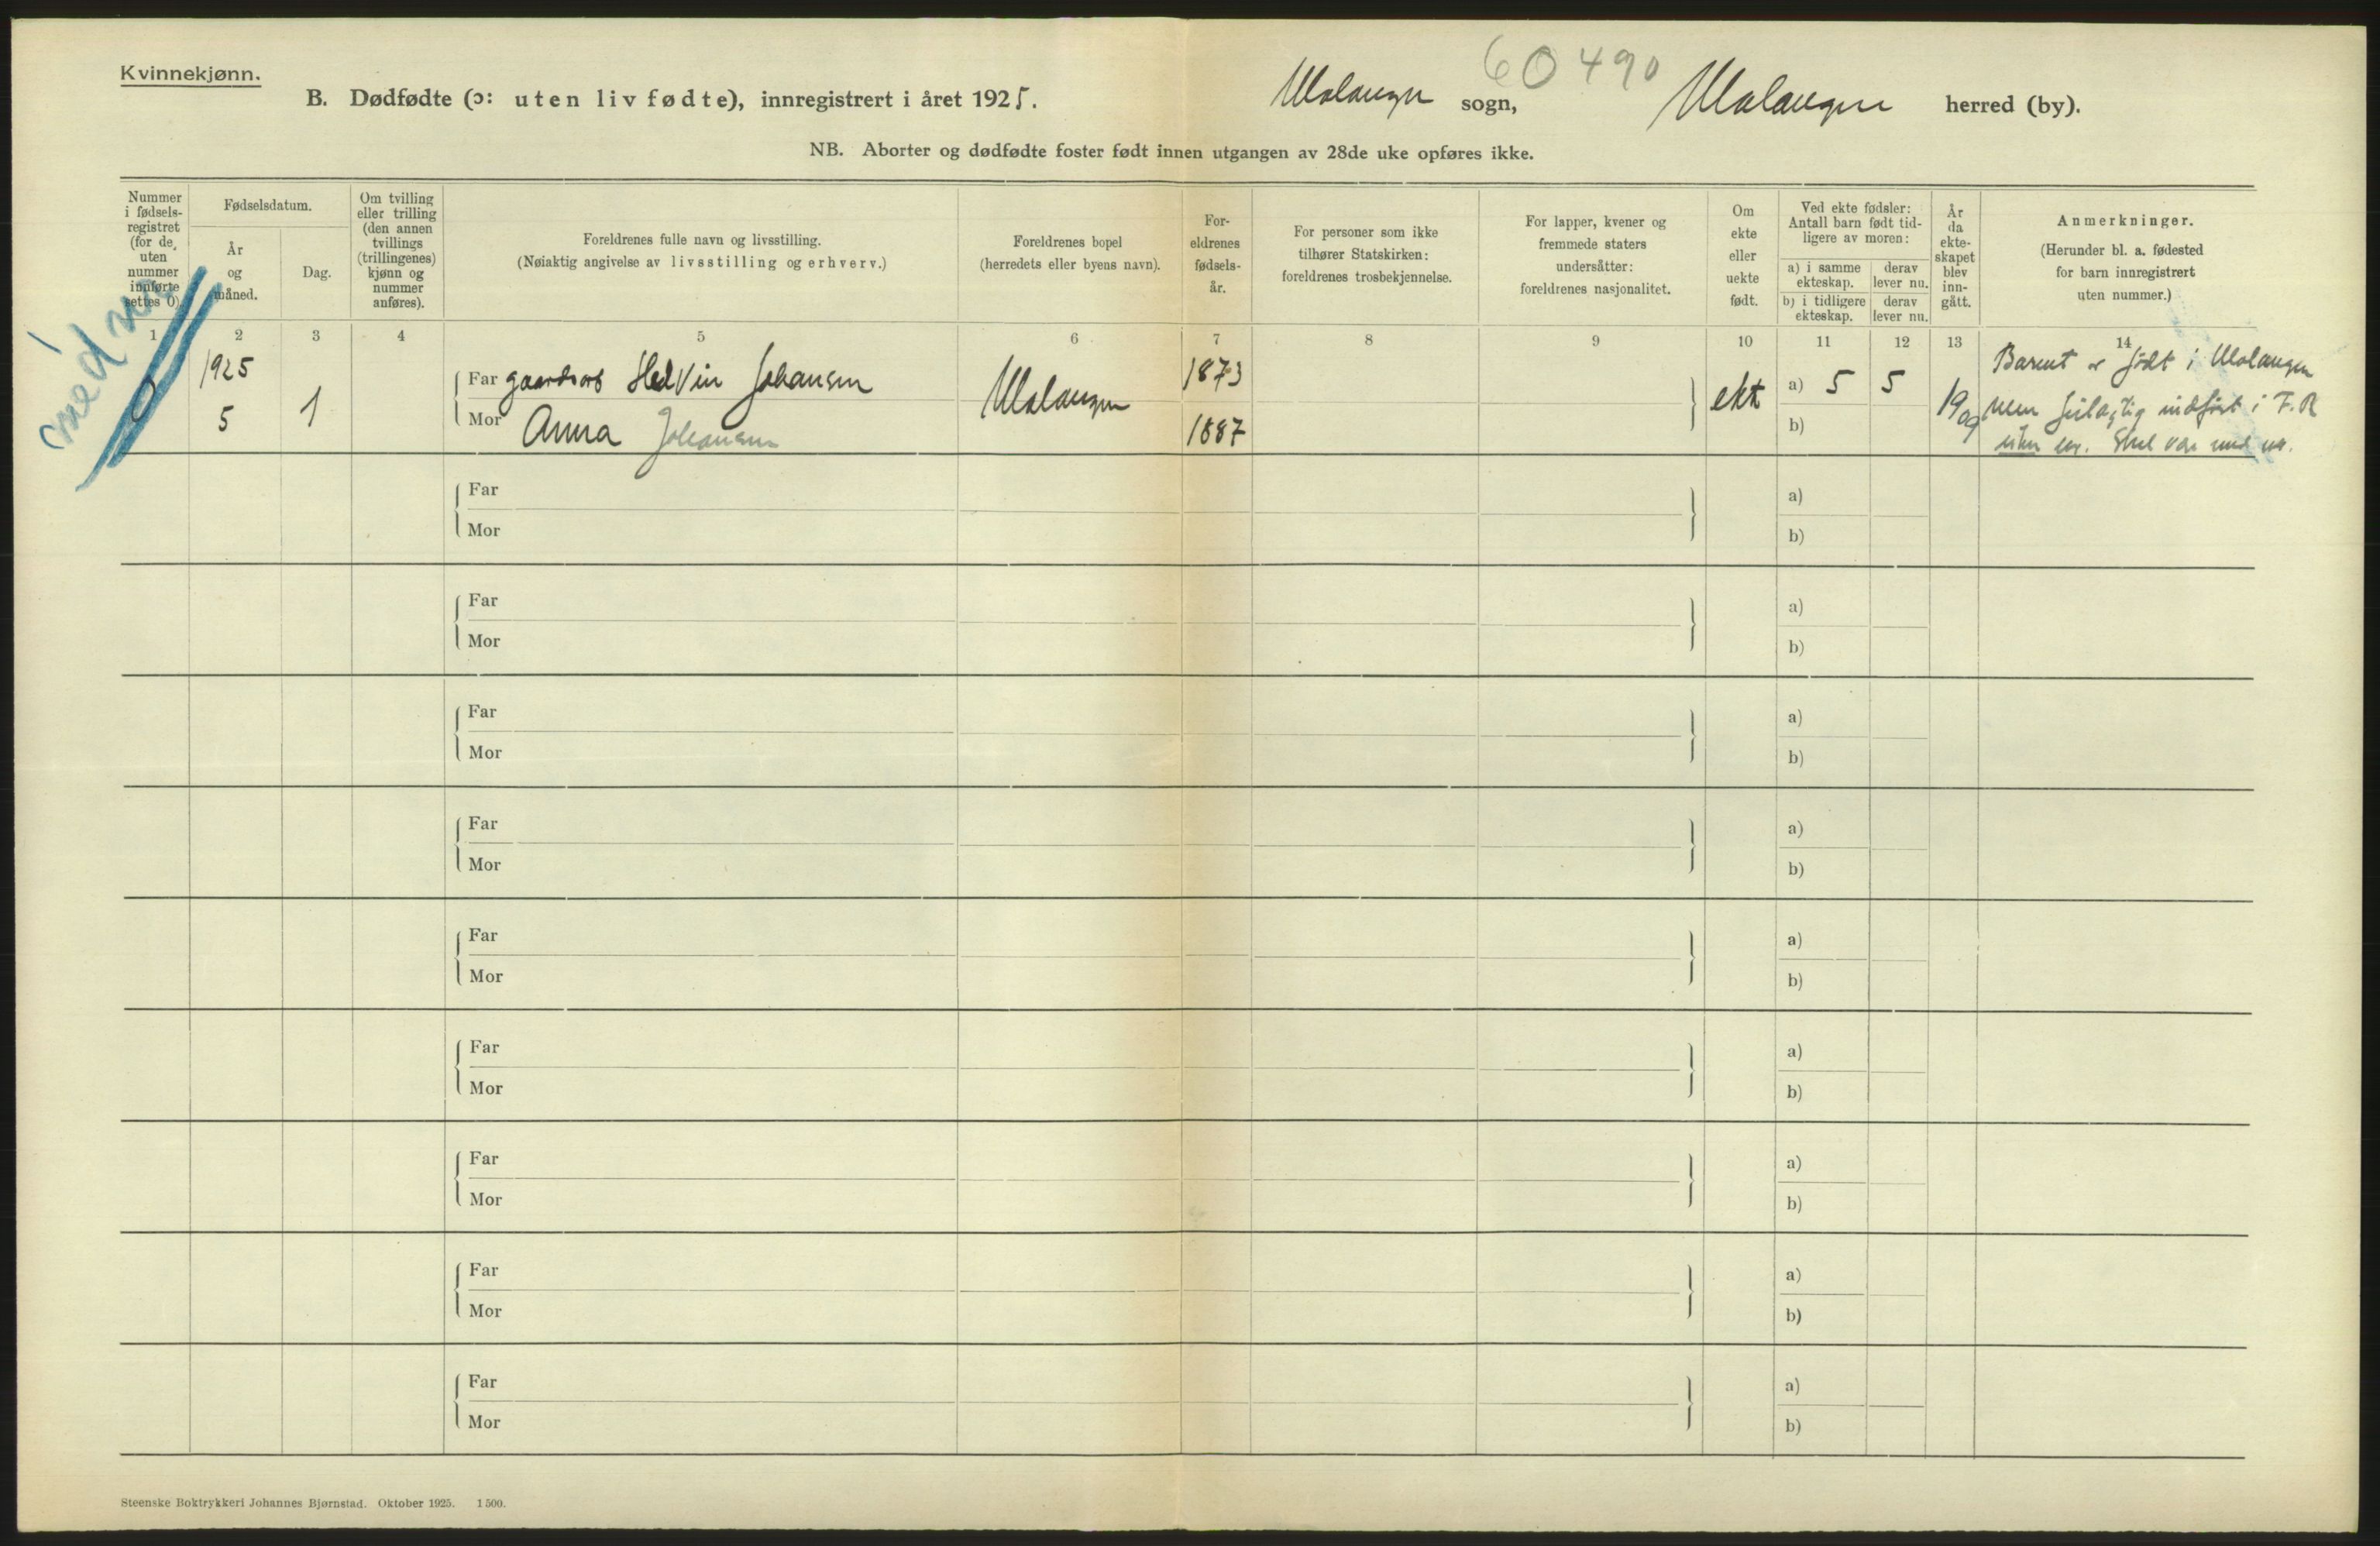 Kvinnekjønn.
60490
B. Dødfødte (ɔ: uten liv fødte), innregistrert i året 1925. Malangen sogn, Malangen herred (by).
NB. Aborter og dødfødte foster født innen utgangen av 28de uke opføres ikke.
Nummer i fødsels-registret (for de uten nummer innførte settes 0).
Fødselsdatum.
År og måned.
Dag.
Om tvilling eller trilling (den annen tvillings (trillingenes) kjønn og nummer anføres).
Foreldrenes fulle navn og livsstilling.
(Nøiaktig angivelse av livsstilling og erhverv.)
Foreldrenes bopel
(herredets eller byens navn).
For-eldrenes fødsels-år.
For personer som ikke tilhører Statskirken: foreldrenes trosbekjennelse.
For lapper, kvener og fremmede staters undersåtter: foreldrenes nasjonalitet.
Om ekte eller uekte født.
Ved ekte fødsler: Antall barn født tid-ligere av moren:
a) i samme ekteskap.
derav lever nu.
b) i tidligere ekteskap.
derav lever nu.
År da ekte-skapet blev inn-gått.
Anmerkninger.
(Herunder bl. a. fødested for barn innregistrert uten nummer.)
1 2 3 4 5 6 7 8 9 10 11 12 13 14
med nr.
0
1925
5
1
Far gaardsarb Hedvin Johansen
Mor Anna Johansen
Malangen
1873
1887
ekte
a) 5 5
b)
1909
Barnet er født i Malangen
men feilagtig indført i F.R
uten nr. Skal være med nr.
Far a)
Mor b)
Far a)
Mor b)
Far a)
Mor b)
Far a)
Mor b)
Far a)
Mor b)
Far a)
Mor b)
Far a)
Mor b)
Far a)
Mor b)
Far a)
Mor b)
Steenske Boktrykkeri Johannes Bjørnstad. Oktober 1925. 1500.